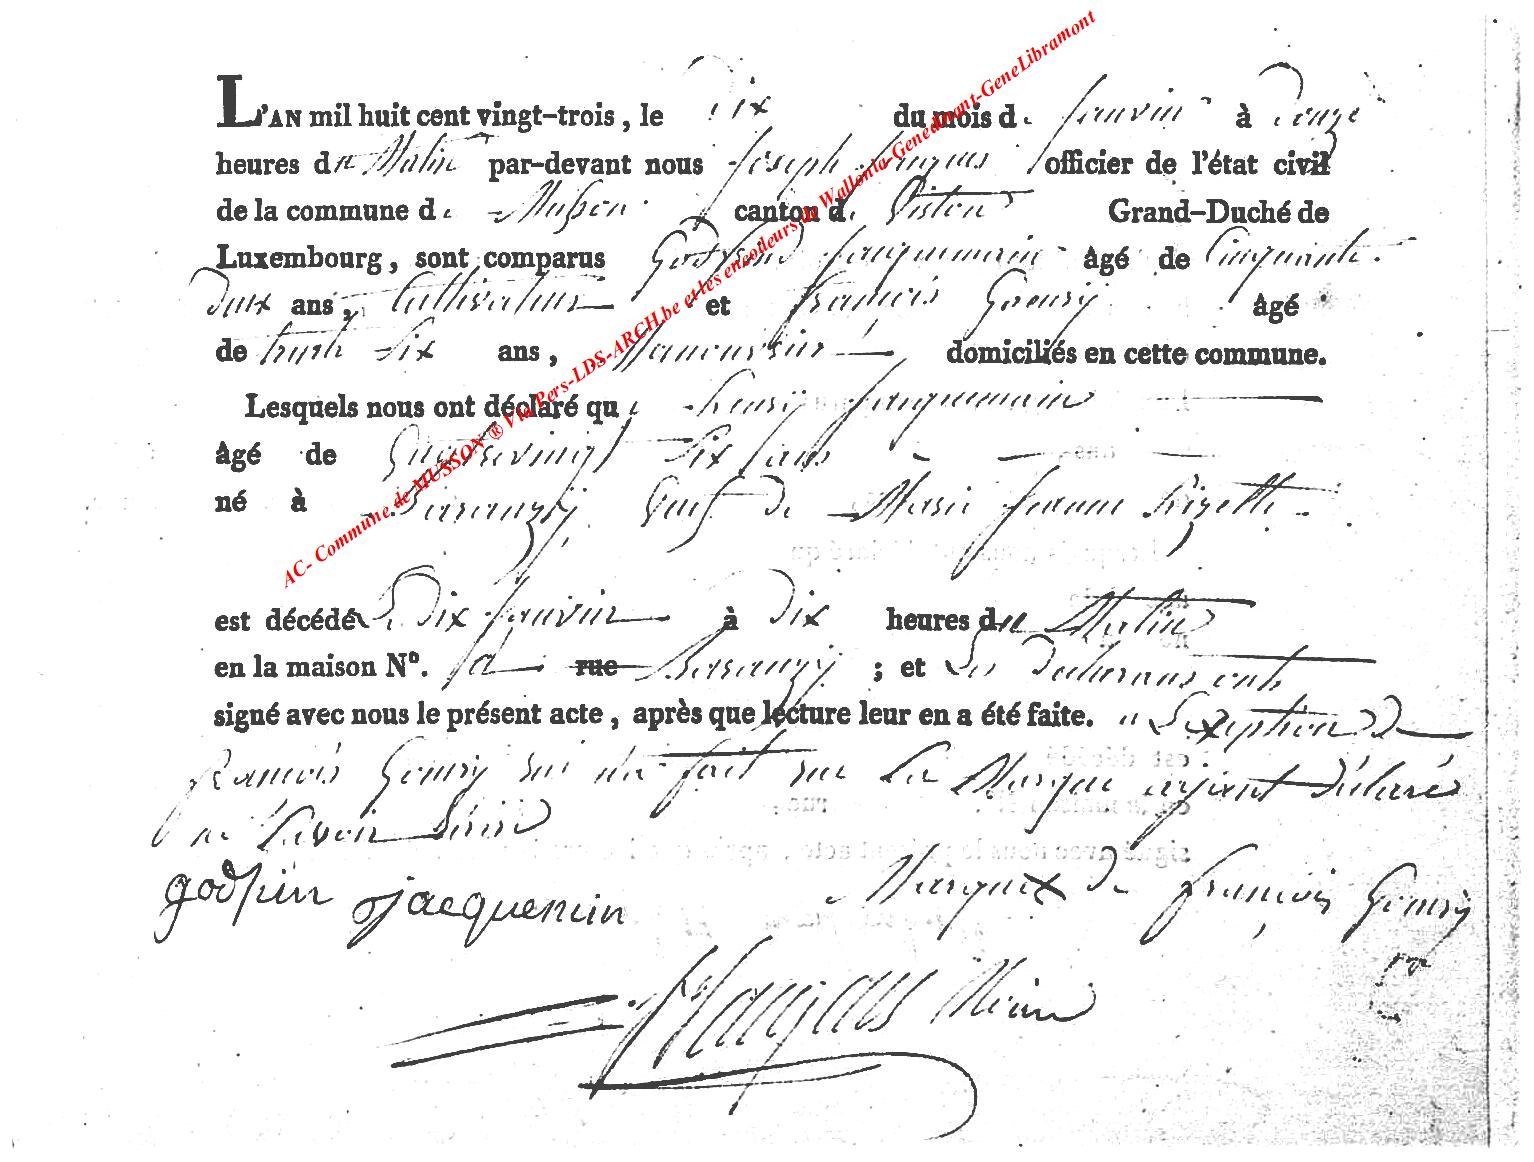 L'AN mil huit cent vingt-trois, le Dix du mois de Janvier à Douze
heures du Matin par-devant nous Joseph officier de l'état civil
de la commune de Musson canton de Virton Grand-Duché de
Luxembourg, sont comparus Jacquemain âgé de Cinquante
Deux ans, Cultivateur et François Goury âgé
de trente Six ans, Manouvrier domiciliés en cette commune.
Lesquels nous ont déclaré que henry Jacquemain
âgé de Quatrevingt Six ans
né à Baranzy Veuf de Marie Jeanne
est décédé Le Dix Janvier à Dix heures du Matin
en la maison N°. rue Baranzy ; et Les Declarans ont
signé avec nous le présent acte, après que lecture leur en a été faite. a L'exeption De
François Goury qui n'a fait que La Marque ajant Déclaré
ne Savoir Ecrire
jacquemin Marque X De François Goury
Maire
AC- Commune de MUSSON ® Via Pers-LDS-ARCH.be et les encodeurs de Wallonia-Genedinant-GeneLibramont